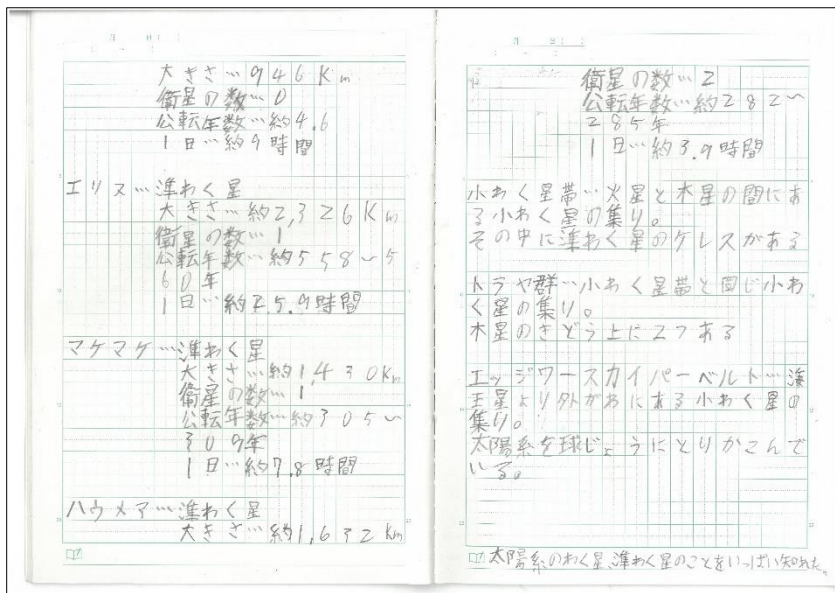 大きさ…946Km
衛星の数…0
公転年数…約4.6
1日…約9時間
エリス…準わく星
大きさ…約2,326Km
衛星の数…1
公転年数…約558〜5
60年
1日…約25.9時間
マケマケ…準わく星
大きさ…約1,430Km
衛星の数…1
公転年数…約305〜
309年
1日…約7.8時間
ハウメア…準わく星
大きさ…約1,632Km
衛星の数…2
公転年数…約282〜
285年
1日…約3.9時間
小わく星帯…火星と木星の間にあ
る小わく星の集り。
その中に準わく星のケレスがある
トラヤ群…小わく星帯と同じ小わ
く星の集り。
木星のきどう上に2つある
エッジワースカイパーベルト…海
王星より外がわにある小わく星の
集り。
太陽系を球じょうにとりかこんで
いる。
太陽系のわく星、準わく星のことをいっぱい知れた。